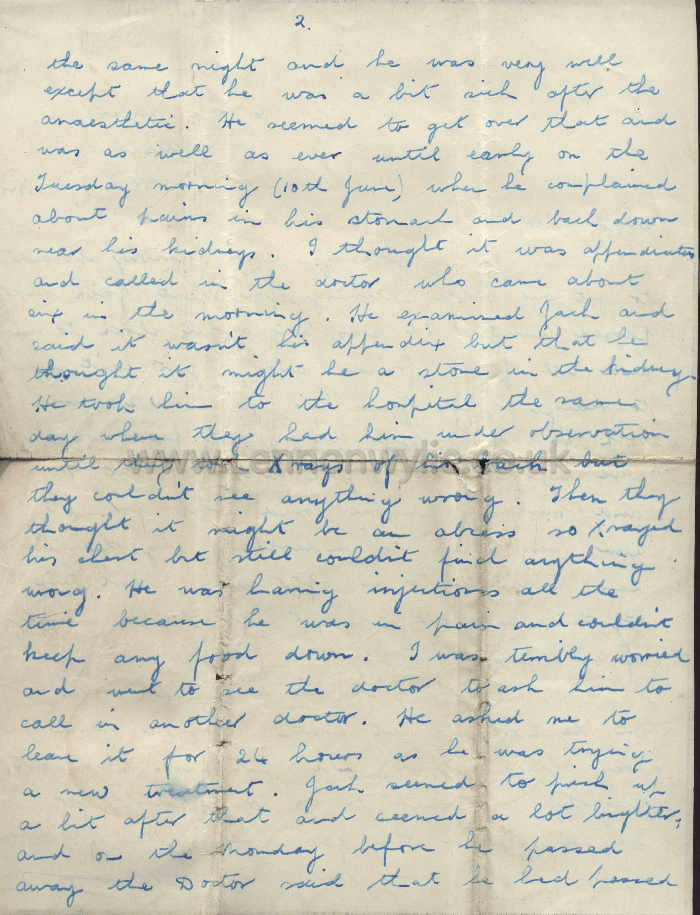 2.
the same night and he was very well
except that he was a bit sick after the
anaesthetic. He seemed to get over that and
was as well as ever until early on the
Tuesday morning (10th June) when he complained
about pains in his stomach and back down
near his kidneys. I thought it was appendicitis
and called in the doctor who came about
six in the morning. He examined Jack and
said it wasn't his appendix but that he
thought it might be a stone in the kidney.
He took him to the hospital the same
day where they had him under observation
until they X rays of his back but
www.Lennonwylie.co.uk
they couldn't see anything wrong. Then they
thought it might be an abcess so X rayed
his chest but still couldn't find anything
wrong. He was having injections all the
time because he was in pain and couldn't
keep any food down. I was terribly worried
and went to see the doctor to ask him to
call in another doctor. He asked me to
leave it for 24 hours as he was trying
a new treatment. Jack seemed to pick up
a bit after that and seemed a lot brighter,
and on the Monday before he passed
away the Doctor said that he had passed